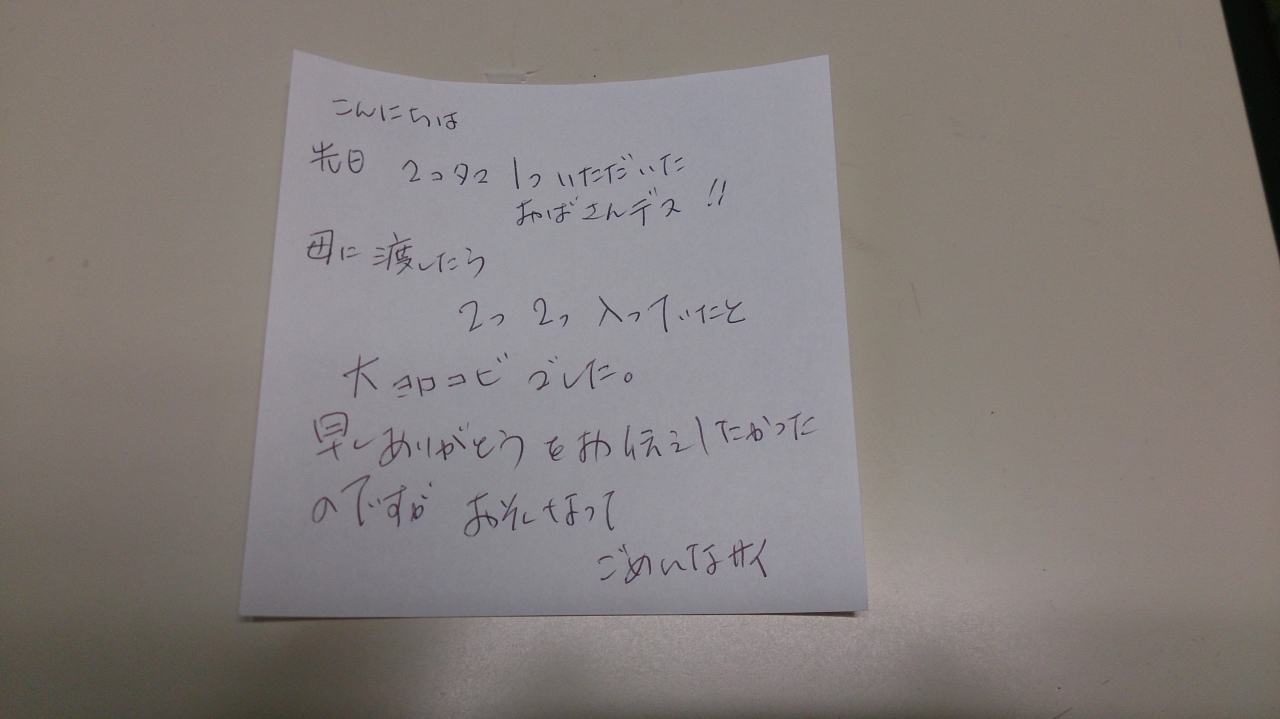 こんにちは
先日 2コタコ 1つ いただいた
おばさんデス!!
母に 渡したら
2つ 2つ 入っていたと
大ヨロコビ でした。
早くありがとう をお伝えしたかった
のですが おそくなって
ごめんなサイ